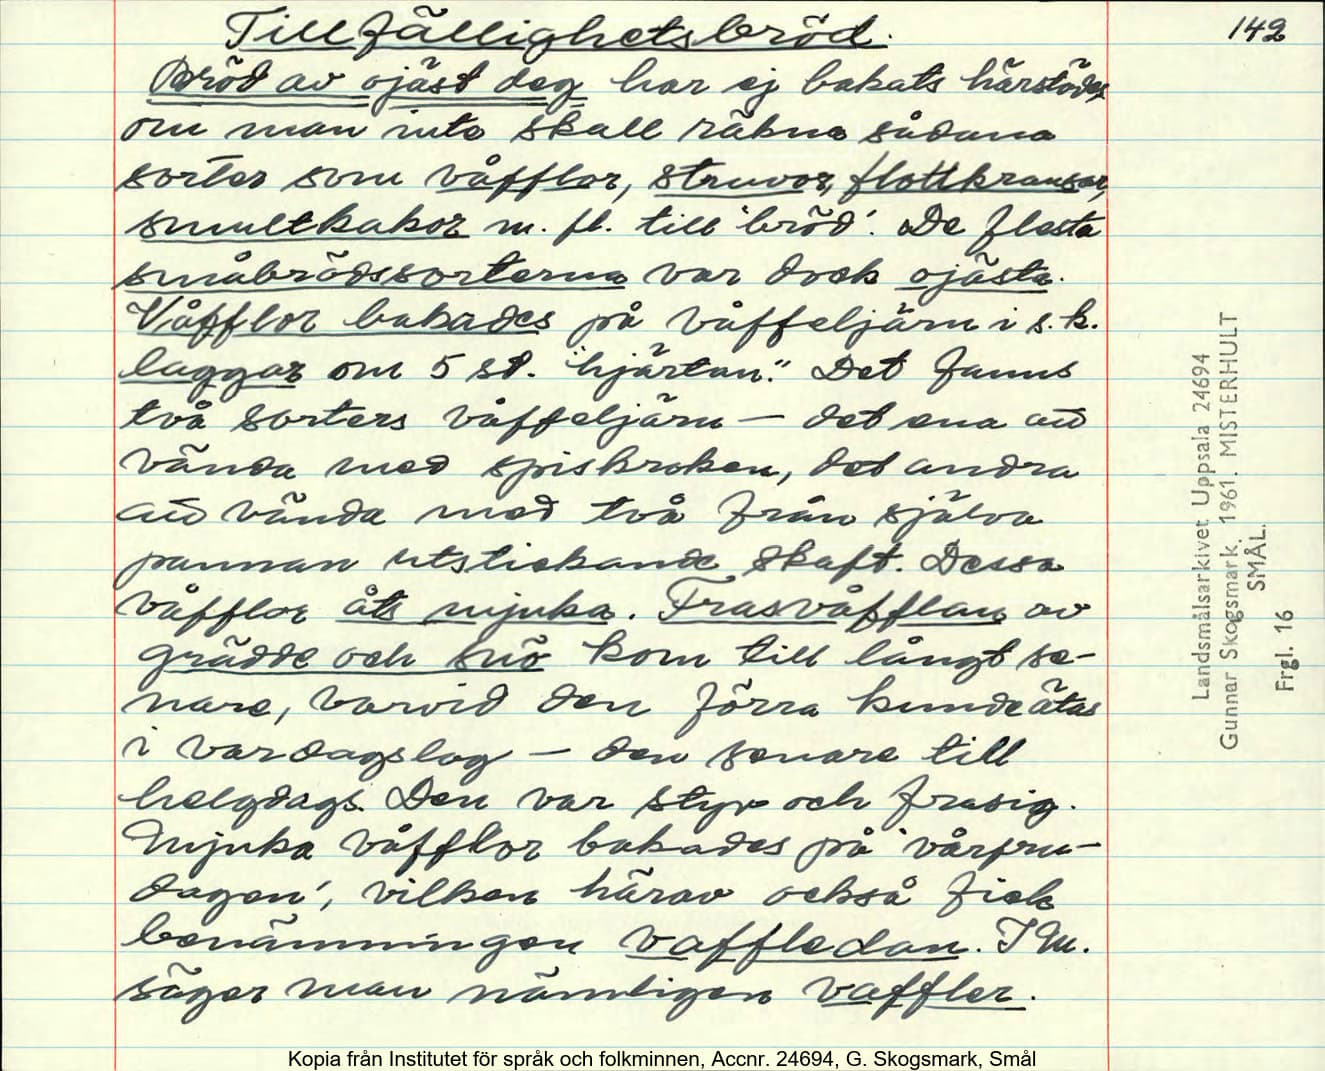 Tillfällighetsbröd.
142
Bröd av ojäst deg har ej bakats härstädes
om man inte skall räkna sådana
sorter som våfflor, struvor, flottkransar,
smultkakor m. fl. till 'bröd'. De flesta
småbrödssorterna var dock ojästa.
Våfflor bakades på våffeljärn i s.k.
laggar om 5 st. "hjärtan". Det fanns
två sorters våffeljärn – det ena att
vända med spiskroken, det andra
att vända med två från själva
pannan utstickande skaft. Dessa
våfflor åts mjuka. Frasvåfflan av
grädde och snö kom till långt se-
nare, varvid den förra kunde ätas
i vardagslag – den senare till
helgdags. Den var styv och frasig.
Mjuka våfflor bakades på 'vårfru-
dagen', vilken härav också fick
benämningen vaffledan. I M.
säger man nämligen vaffler.
Landsmålsarkivet Uppsala 24694
Gunnar Skogsmark. 1961. MISTERHULT
SMÅL.
Frgl. 16
Kopia från Institutet för språk och folkminnen, Accnr. 24694, G. Skogsmark, Smål